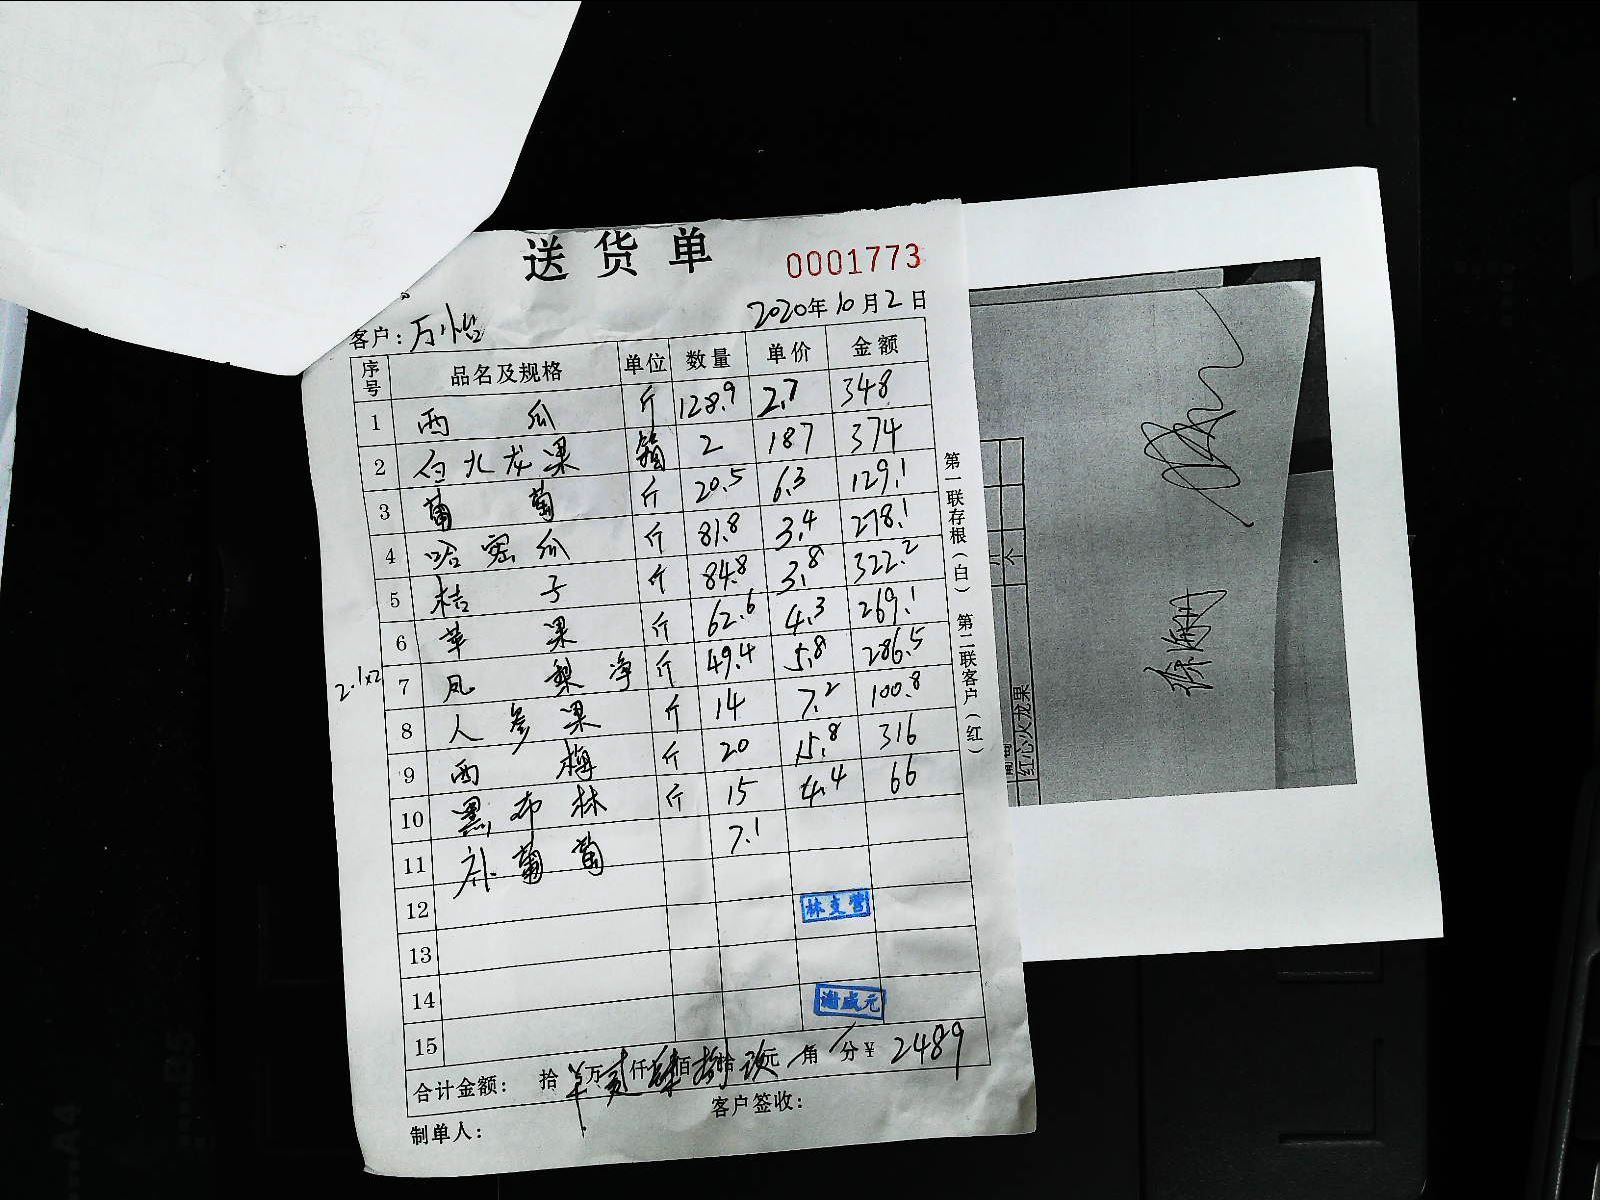 送货单 0001773
客户：万怡 2020年10月2日
序号 品名及规格 单位 数量 单价 金额
1 西瓜 斤 128.9 2.7 348
2 白火龙果 箱 2 187 374
3 葡萄 斤 20.5 6.3 129.1
4 哈密瓜 斤 81.8 3.4 278.1
5 桔子 斤 84.8 3.8 322.2
6 苹果 斤 62.6 4.3 269.1
2.1x2 7 凤梨净 斤 49.4 5.8 286.5
8 人参果 斤 14 7.2 100.8
9 西梅 斤 20 15.8 316
10 黑布林 斤 15 4.4 66
11 补葡萄 7.1
12 林支营
13
14 谢成元
15
合计金额： 拾 万贰仟肆佰捌拾玖元 角 分¥ 2489
制单人： 客户签收：
第一联存根（白） 第二联客户（红）
红心火龙果
个